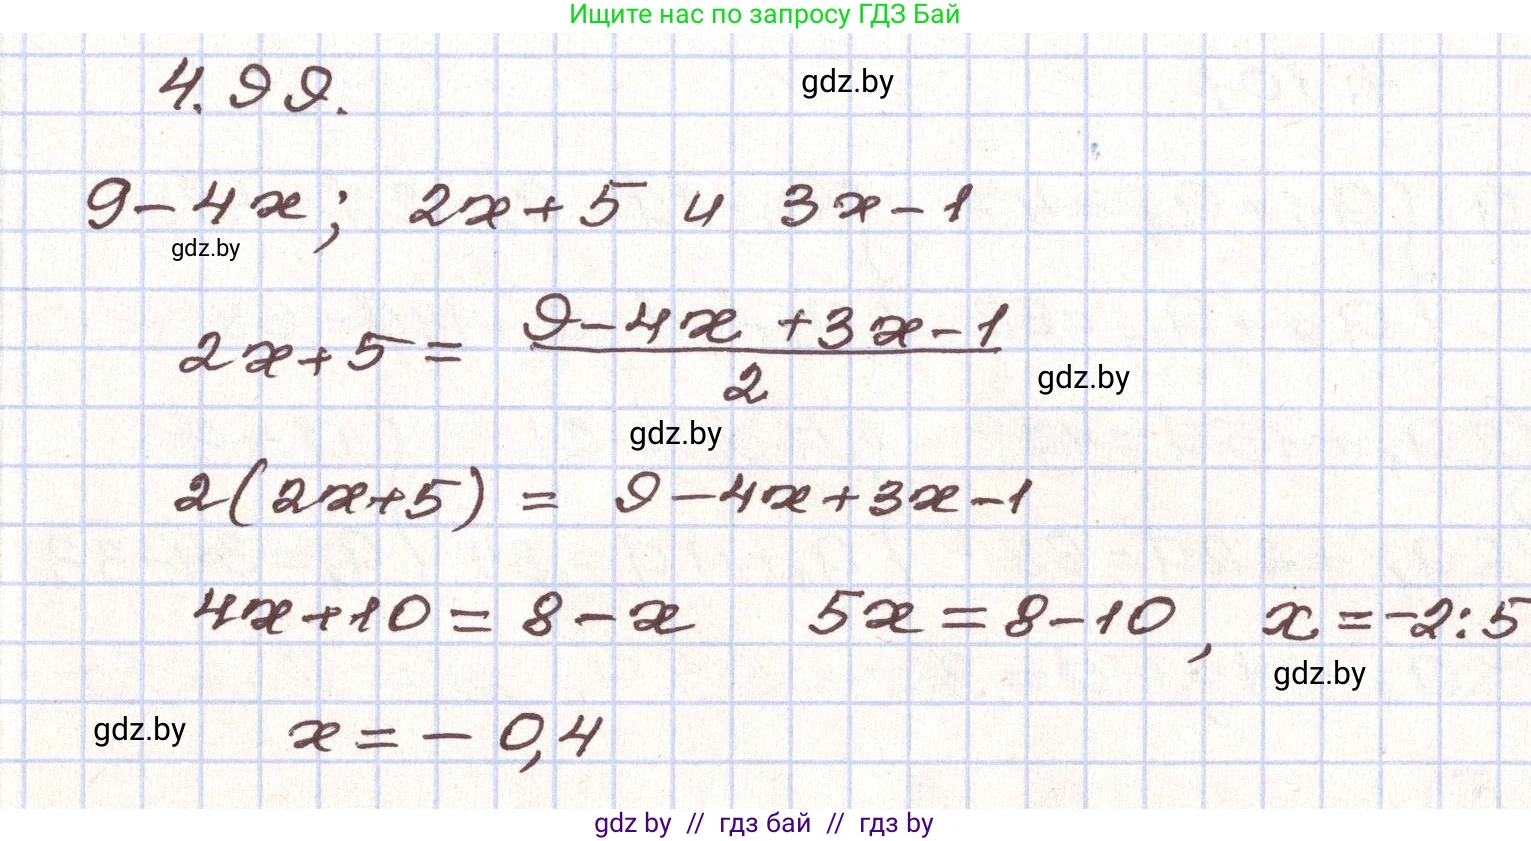 Ищите нас по запросу ГДЗ Бай
4.99.
gdz.by
9-4x; 2x+5 и 3x-1
gdz.by
2x+5 = \frac{9-4x+3x-1}{2}
gdz.by
gdz.by
2(2x+5) = 9-4x+3x-1
4x+10=8-x 5x=8-10, x=-2:5
gdz.by
gdz.by
x=-0,4
gdz by // гдз бай // гдз by